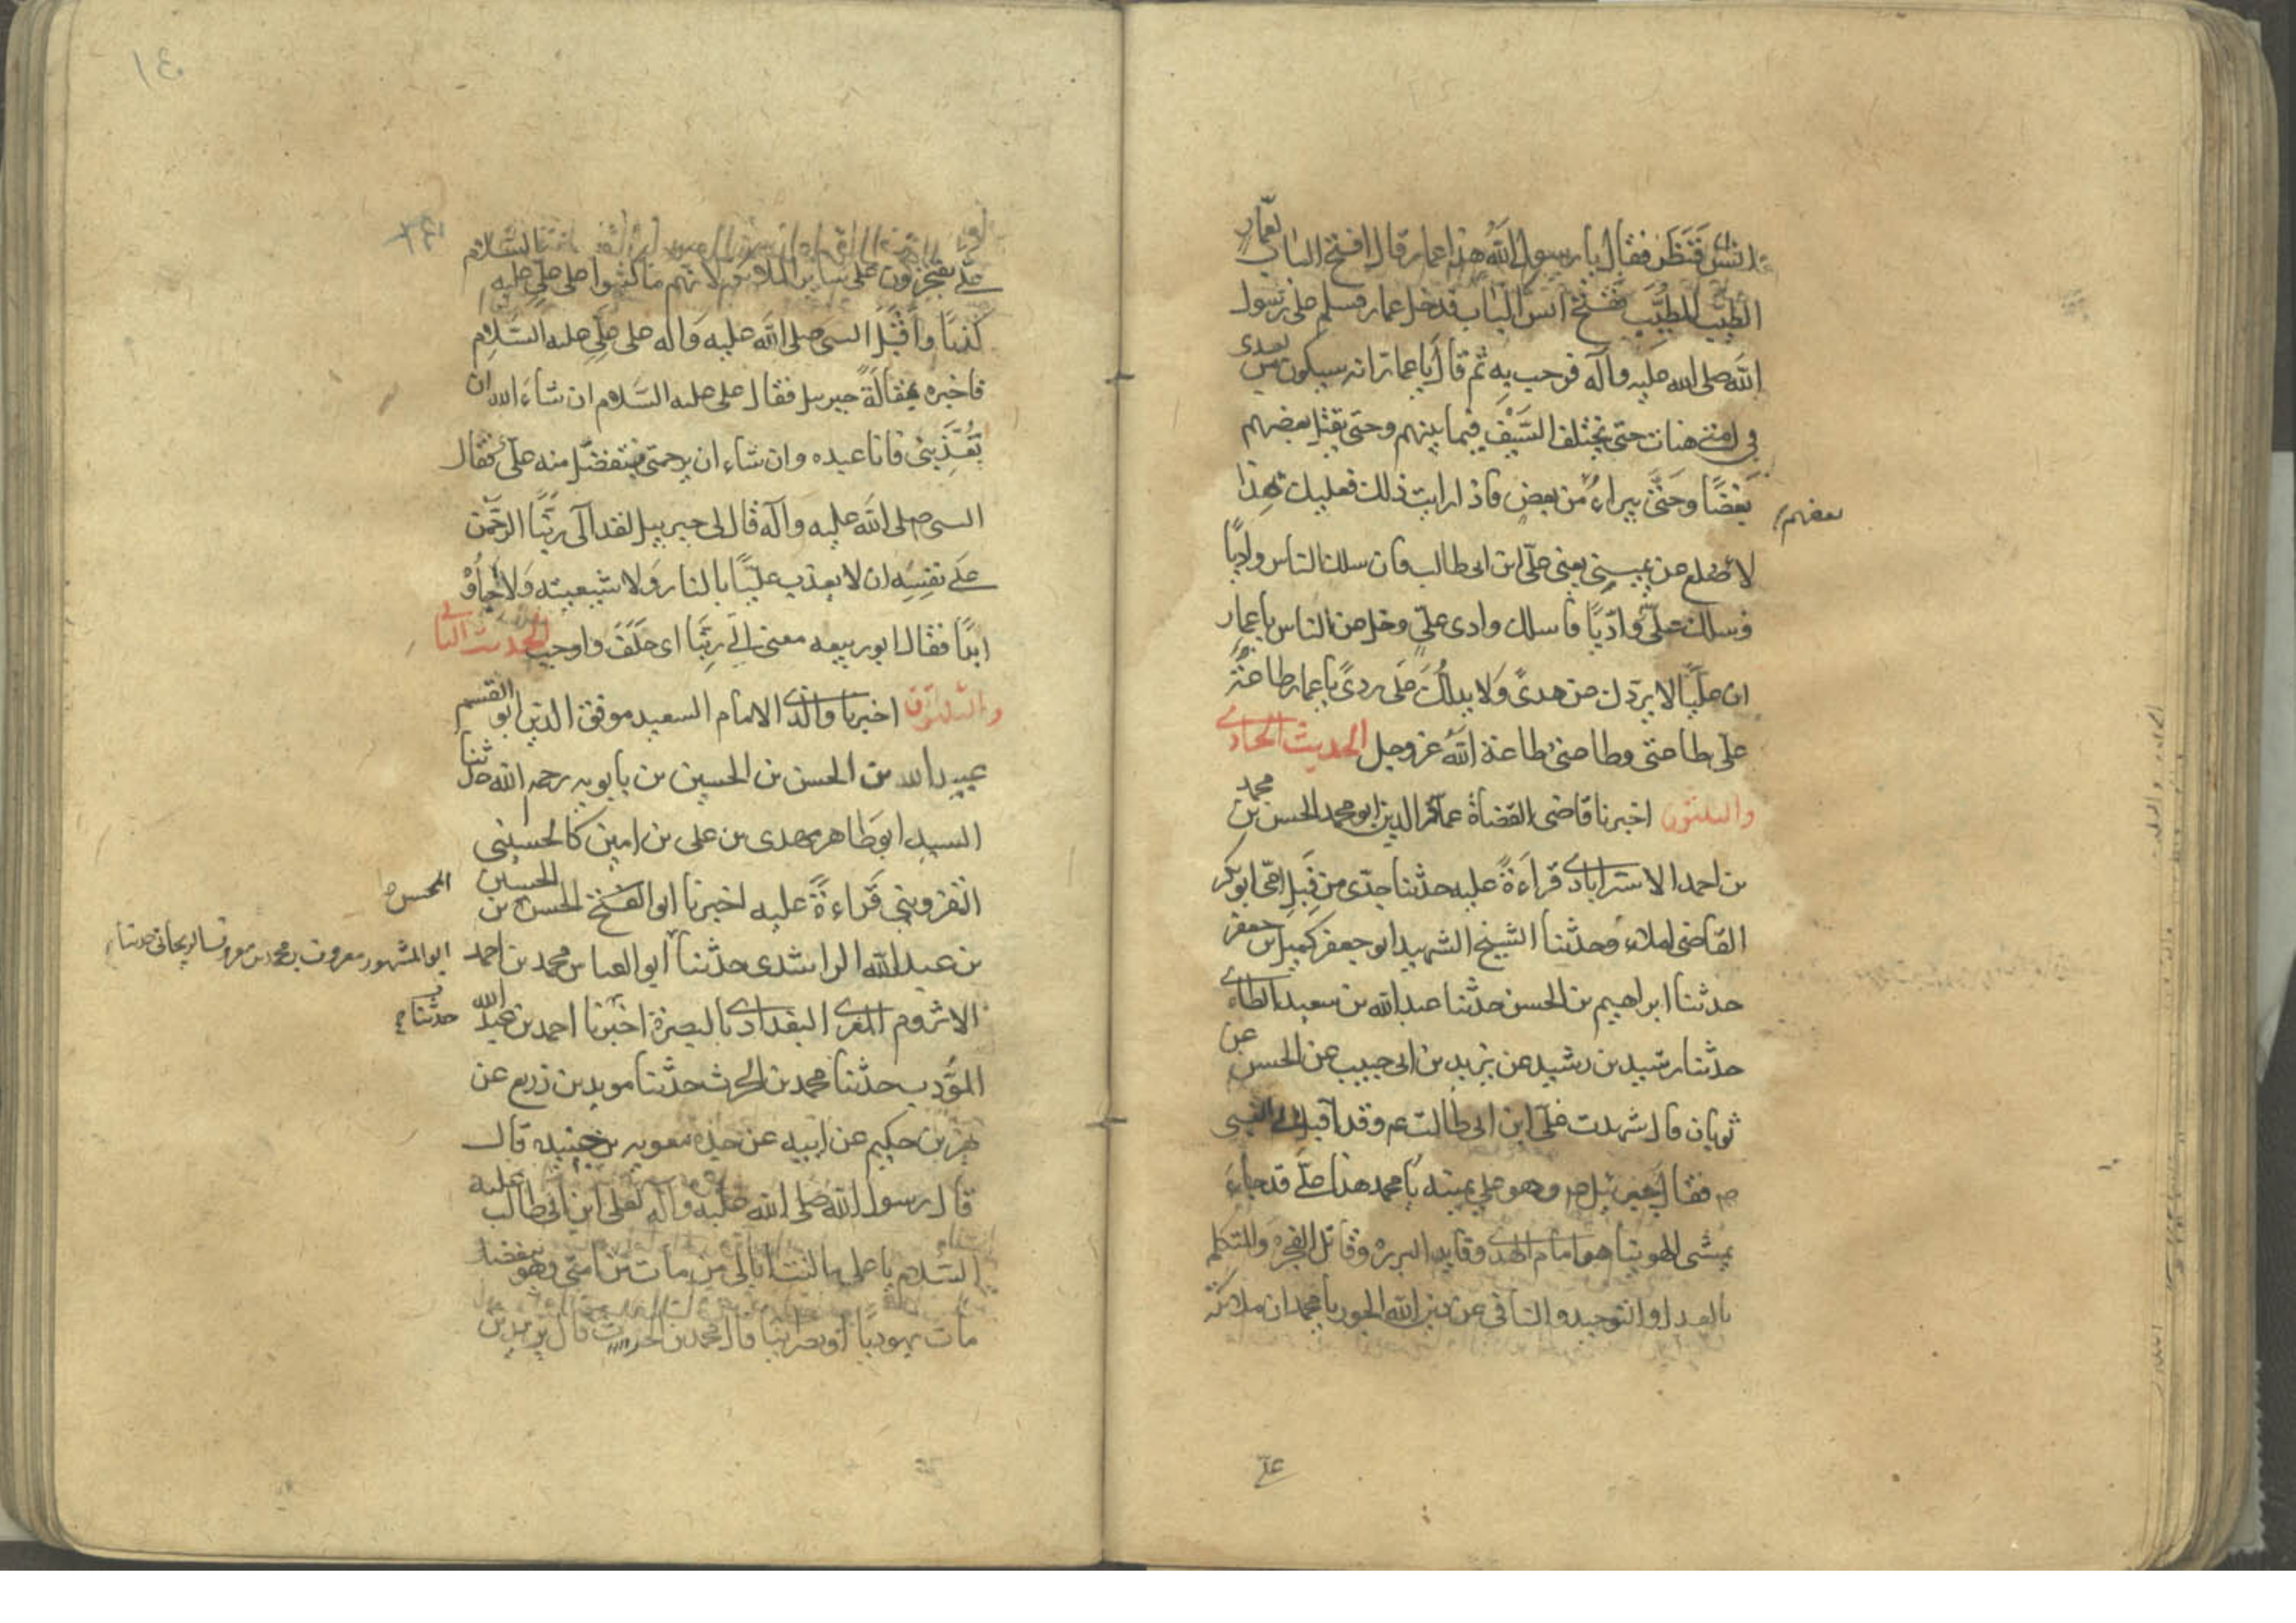 انس فنظر فقال يا رسول الله هذا عمار قال افتح الباب لعمار
الطيّب المطيّب ففتح انس الباب فدخل عمار فسلم على رسول
الله صلى الله عليه وآله فرحب به ثم قال يا عمار انه سيكون من بعدى
في امتي هنات حتى يختلف السَّيْف فيما بينهم وحتى يقتل بعضهم
بَعْضًا وحَتىّ يبراء من بعض فاذا رايت ذلك فعليك بهذا
بعضهم
لاصلع عن يميني يعني علّى ابن ابى طالب فان سلك الناس واديًا
وسلك علىّ واديًا فاسلك وادى علىّ وخل عن الناس يا عمار
ان عليًّا لا يردك عن هدىً ولا يدلك على ردىً يا عمار طاعة
على طاعتى وطاعتى طاعة الله عز وجل الحديث الحادي
والثلثون اخبرنا قاضى القضاة عماد الدين ابو محمد الحسن بن محمد
بن احمد الاستراباذي قراءةً عليه حدثنا جدّى من قبل امّى ابو بكر
القاضى املاء وحدثنا الشيخ الشهيد ابو جعفر كميل بن جعفر
حدثنا ابراهيم بن الحسن حدثنا عبد الله بن سعيد الطاءي
حدثنا رشيد بن رشيد عن يزيد بن ابى حبيب عن الحسن عن
ثوبان قال شهدت علىّ ابن ابى طالب عم وقد اقبل الى النبى
ص فقال جبرئيل ص وهو على يمينه يا محمد هذا علىّ قد جاءَ
يمشى الهوينا هو امام الهدي وقايد البرره وقاتل الفجره والمتكلم
بالعدل والتوحيد والنافى عن دين الله الجور يا محمد ان ملائكة
علىّ
١٤٠
علىّ يفتخرون على ساير الملائكة لانهم ما كتبوا على علىّ عليه السّلام
كذبًا واَقْبَلَ النبى صلى الله عليه وآله على علىّ عليه السَّلام
فاخبره بمقالَة جبريل فقال على عليه السَّلام ان شاءَ الله ان
يُعَذِّبنى فانا عبده وان شاء ان يرحمنى فبتفضّل منه علىّ فقال
النبى صلى الله عليه وآله قال لى جبرييل لقد آلى ربّنا الرحمن
على نفسِه ان لا يعذب عليًّا بالنار ولا شيعته ولا
ابدًا فقال ابو ربيعه معنى آلى ربّنا اى حَلَفَ واوجب الحديث الثاني
والثلثون اخبرنا والدي الامام السعيد موفق الدين ابو القسم
عبيد الله بن الحسن بن الحسين بن بابويه رحمه الله حدثنا
السيد ابو طاهر مهدى بن على بن اميركا الحسينى
القزويني قراءةً عليه اخبرنا ابو الفتح الحسن بن الحسين
المحسن
بن عبد الله الراشدى حدّثنا ابو العباس محمد بن احمد
ابو المشهور معروف بن محمد بن معروف الريحانى حدثنا
الاثروم المقرى البغدادي بالبصرة اخبرنا احمد بن عبد الله
حدثنا
المؤدب حدثنا محمد بن الحرث حدثنا مويد بن زريع عن
بهز بن حكيم عن ابيه عن جده معويه بن حيده قال
قال رسول الله صلى الله عليه وآله لعلى ابن ابى طالب عليه
السّلام يا على ما كنت ابالى من مات من امتى وهو يبغضك
مات يهوديًا او نصرانيًا قال محمد بن الحرث قال يزيد بن